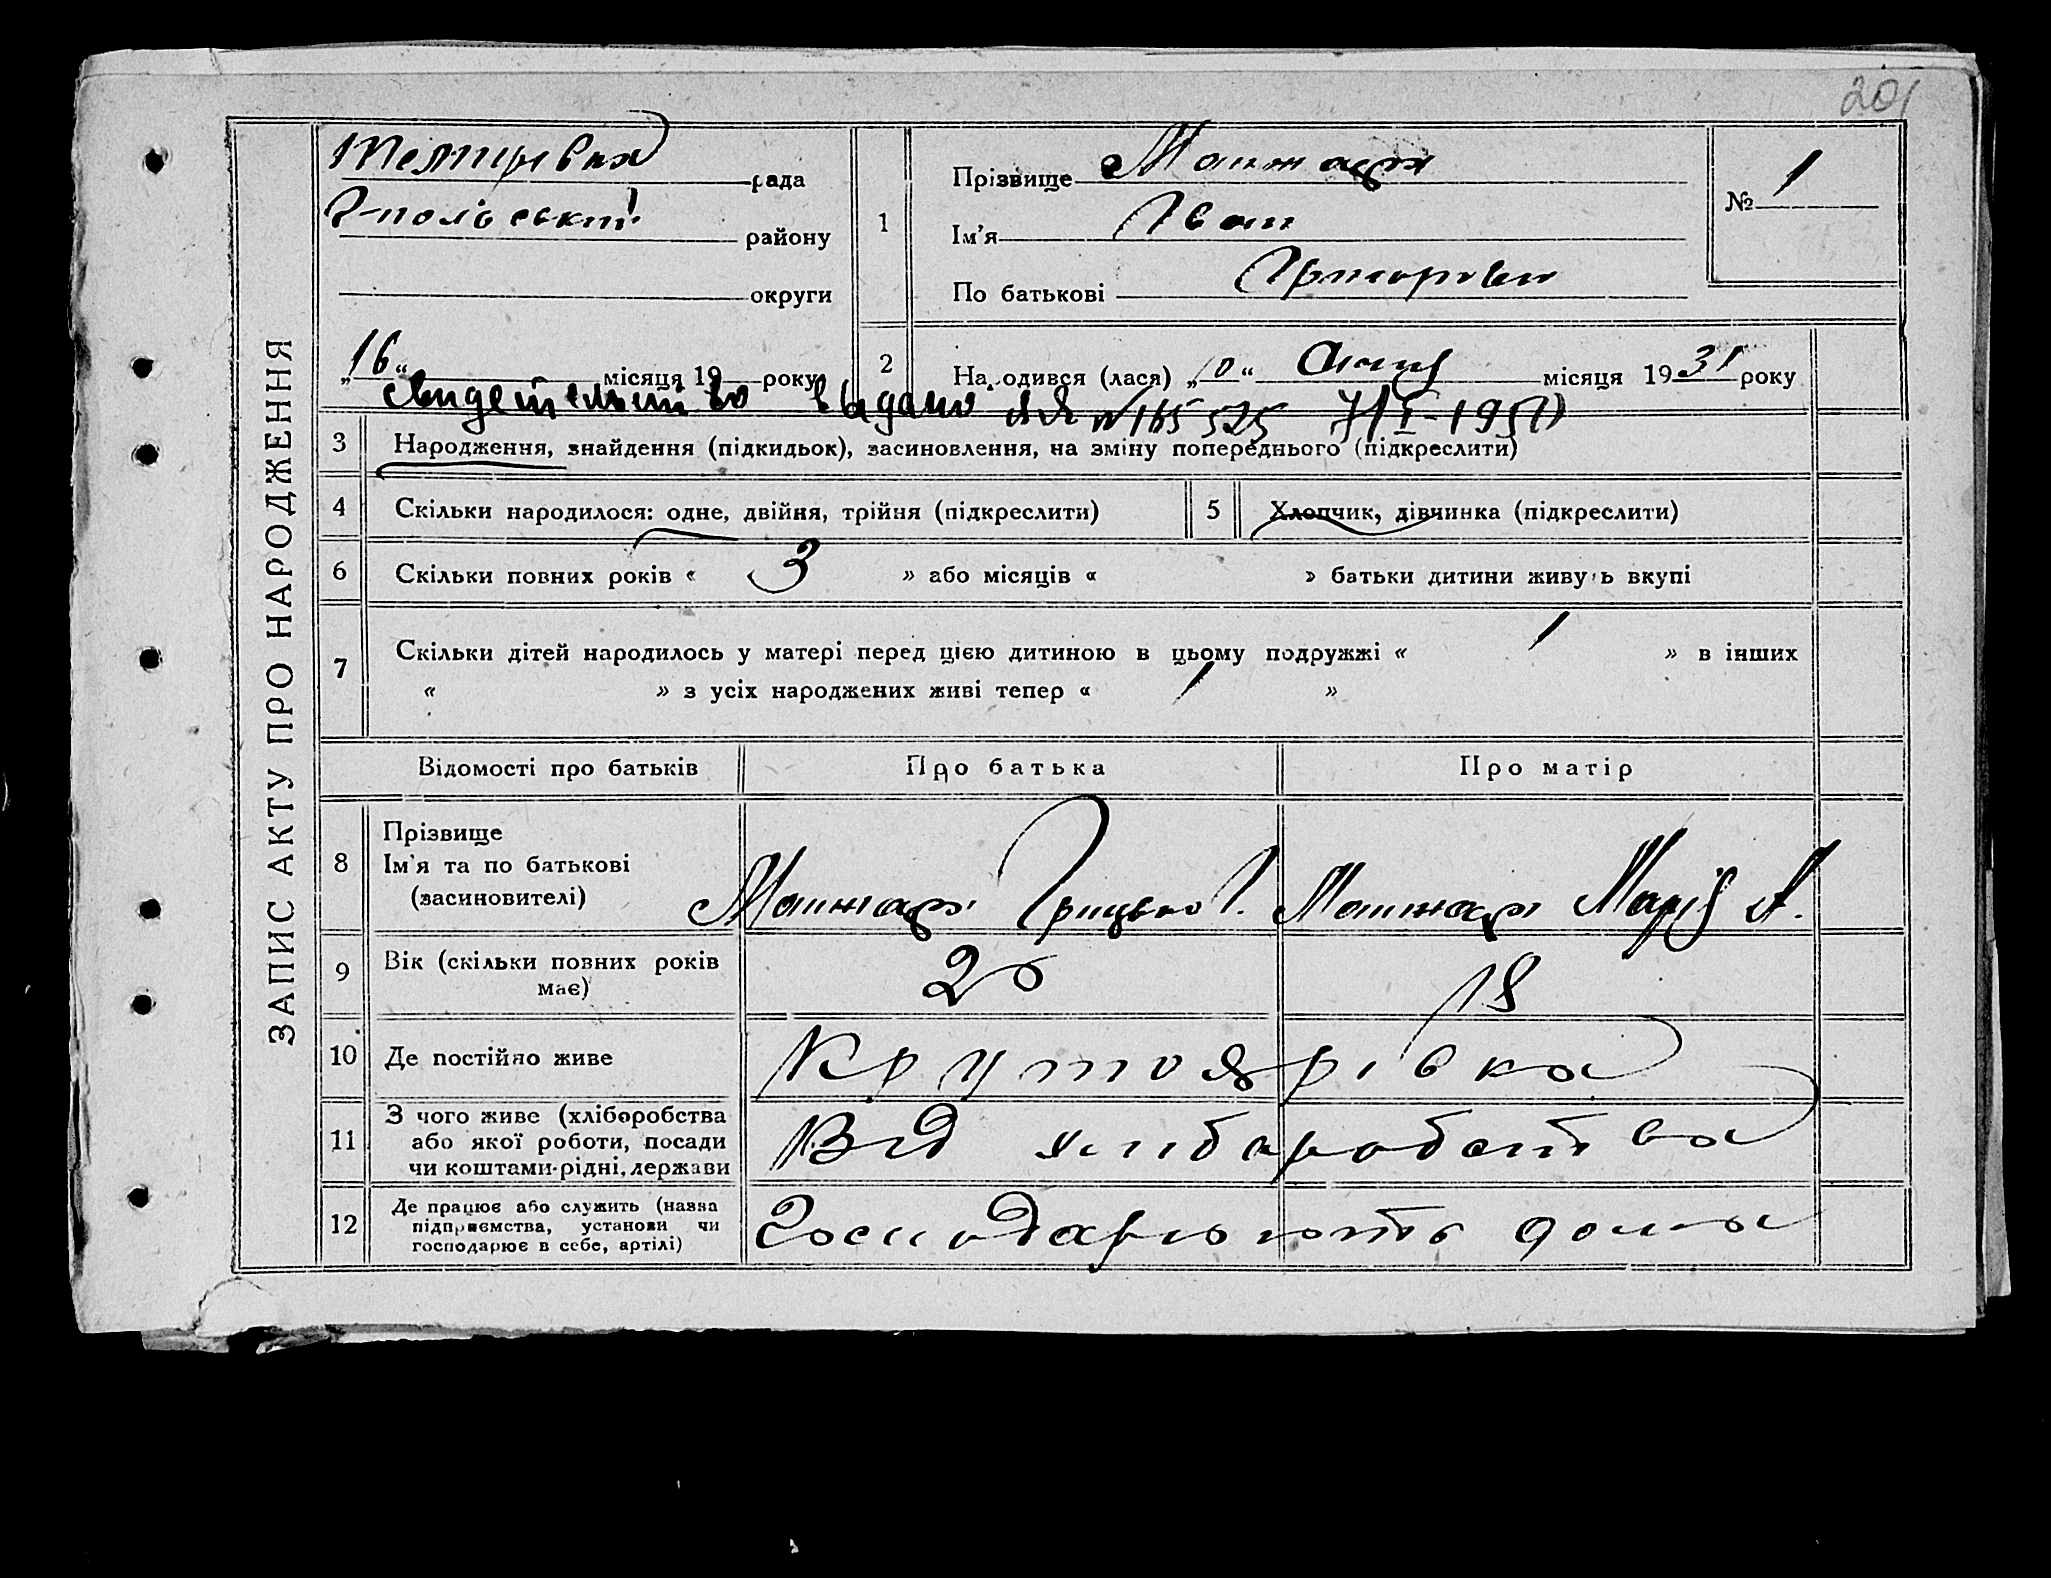 201
ЗАПИС АКТУ ПРО НАРОДЖЕННЯ
рада
району
округи
„16“ місяця 19 року
1 Прізвище Манжара
Ім'я Іван
По батькові Григорович
№ 1
2 Народився (лася) „10“ Січня місяця 1931 року
свидетельство выдано № 165525 7/I-1951
3 Народження, знайдення (підкидьок), засиновлення, на зміну попереднього (підкреслити)
4 Скільки народилося: одне, двійня, трійня (підкреслити)
5 Хлопчик, дівчинка (підкреслити)
6 Скільки повних років « 3 » або місяців « » батьки дитини живуть вкупі
7 Скільки дітей народилось у матері перед цією дитиною в цьому подружжі « 1 » в інших
« » з усіх народжених живі тепер « 1 »
Відомості про батьків Про батька Про матір
8 Прізвище
Ім'я та по батькові
(засиновителі)
Манжара Грицько І. Манжара Марія А.
9 Вік (скільки повних років
має)
18
10 Де постійно живе Крутоярівка
11 З чого живе (хліборобства
або якої роботи, посади
чи коштами-рідні, держави
Від хліборобства
12 Де працює або служить (назва
підприємства, установи чи
господарює в себе, артілі)
Господарюють дома